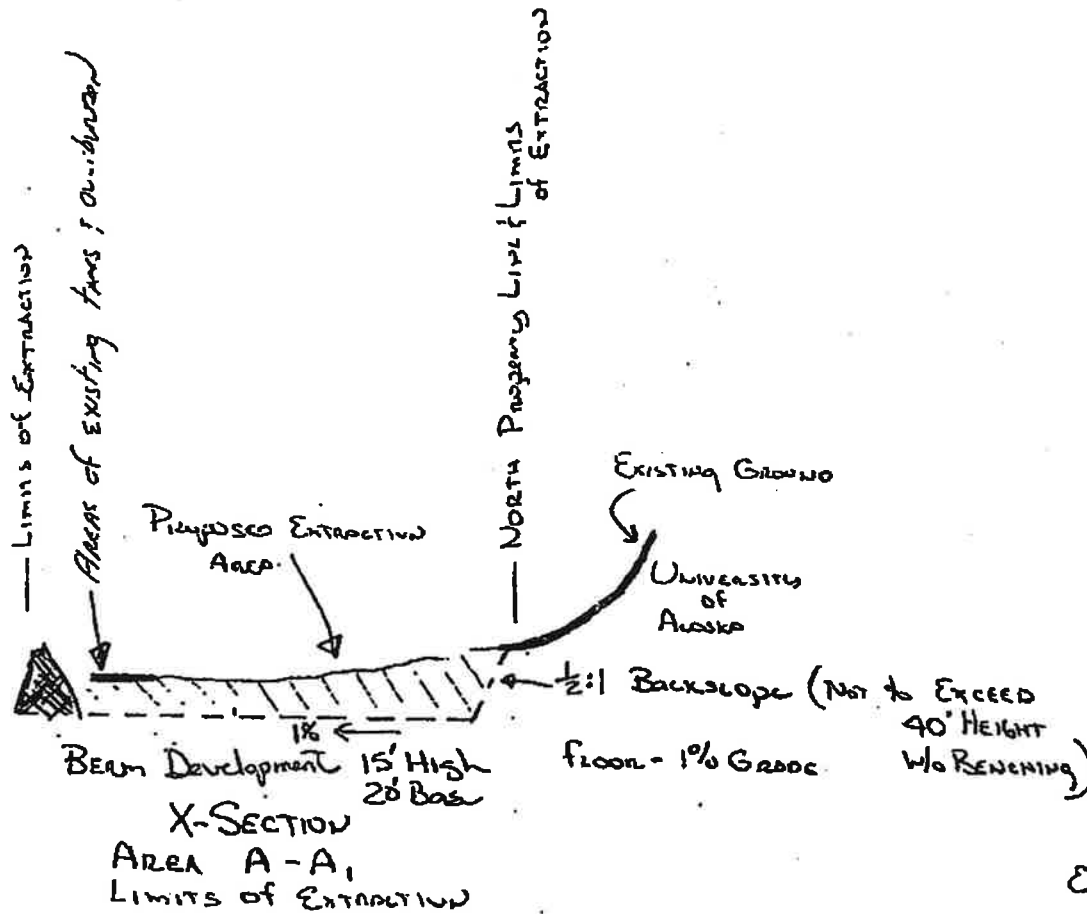 Limits of Extraction
Areas of Existing
North Property Line & Limits
of Extraction
Existing Ground
Proposed Extraction
Area
University
of
Alaska
1/2:1 Backslope (Not to Exceed
40' Height
w/o Benching)
1%
Berm Development 15' High
20' Base
floor - 1% Grade
X-Section
Area A-A1
Limits of Extraction
E